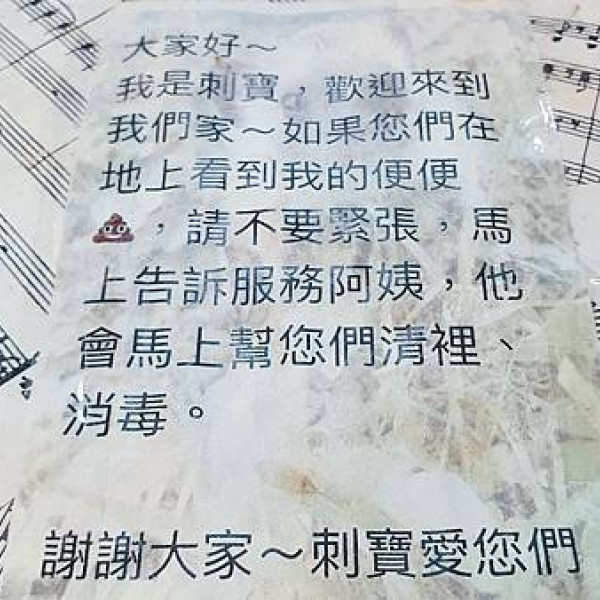 大家好～
我是刺寶，歡迎來到
我們家～如果您們在
地上看到我的便便
💩，請不要緊張，馬
上告訴服務阿姨，他
會馬上幫您們清裡、
消毒。
謝謝大家～刺寶愛您們